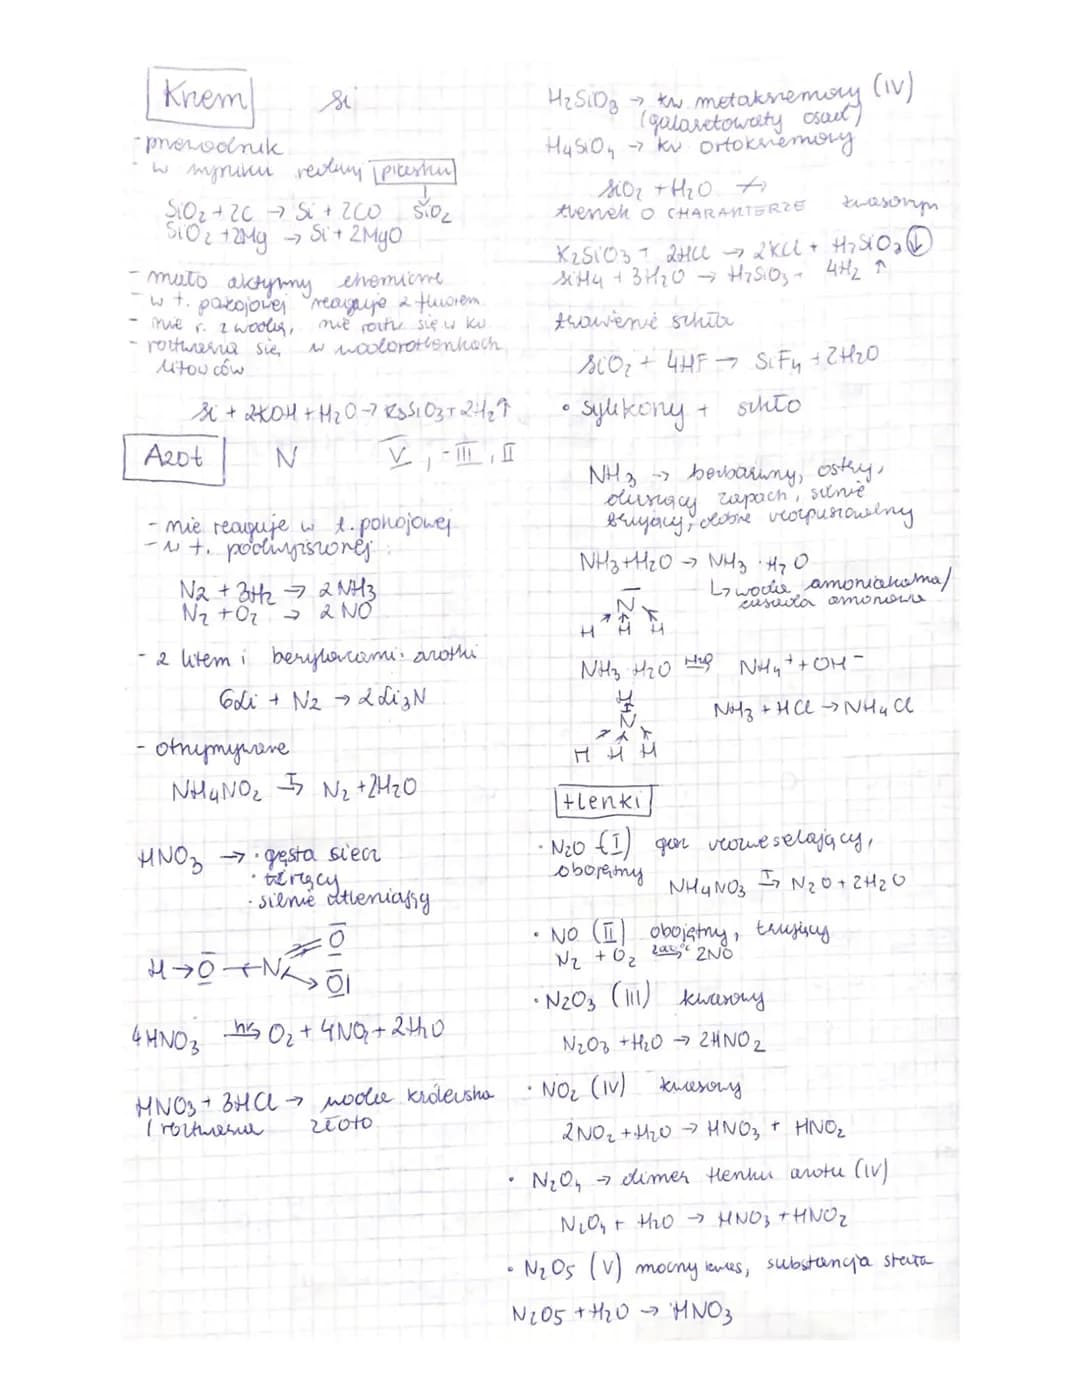 Krzem Si
- przewodnik
- w wyniku redukcji piasku
SiO2 + 2C → Si + 2CO SiO2
SiO2 + 2Mg → Si + 2MgO
- mało aktywny chemicznie
- w t. pokojowej reaguje z fluorem
- nie r. z wodą, nie roztw się w kw
- roztwarza się w wodorotlenkach
litowców
Si + 2KOH + H2O → K2SiO3 + 2H2↑
Azot N V, -III, II
- nie reaguje w t. pokojowej
- w t. podwyższonej:
N2 + 3H2 → 2NH3
N2 + O2 → 2NO
- z litem i berylowcami: azotki
6Li + N2 → 2Li3N
- otrzymywanie
NH4NO2 T→ N2 + 2H2O
HNO3 → · gęsta ciecz
· żrący
· silnie utleniający
H → O ← N O
O
4HNO3 hν→ O2 + 4NO2 + 2H2O
HNO3 + 3HCl → woda królewska
roztwarza złoto
H2SiO3 → kw metakrzemowy (IV)
(galaretowaty osad)
H4SiO4 → kw ortokrzemowy
SiO2 + H2O ↛
tlenek O CHARAKTERZE kwasowym
K2SiO3 + 2HCl → 2KCl + H2SiO3 ↓
SiH4 + 3H2O → H2SiO3 + 4H2 ↑
trawienie szkła
SiO2 + 4HF → SiF4 + 2H2O
• sylikony + szkło
NH3 → bezbarwny, ostry,
duszący zapach, silnie
trujący, dobrze rozpuszczalny
NH3 + H2O → NH3 · H2O
↳ woda amoniakalna/
zasada amonowa
N
H H H
NH3 H2O H2O→ NH4+ + OH-
H
N
H H H
NH3 + HCl → NH4Cl
tlenki
· N2O (I) gaz rozweselający,
obojętny
NH4NO3 T→ N2O + 2H2O
· NO (II) obojętny, trujący
N2 + O2 → 2NO
· N2O3 (III) kwasowy
N2O3 + H2O → 2HNO2
· NO2 (IV) kwasowy
2NO2 + H2O → HNO3 + HNO2
· N2O4 → dimer tlenku azotu (IV)
N2O4 + H2O → HNO3 + HNO2
· N2O5 (V) mocny kwas, substancja stała
N2O5 + H2O → HNO3